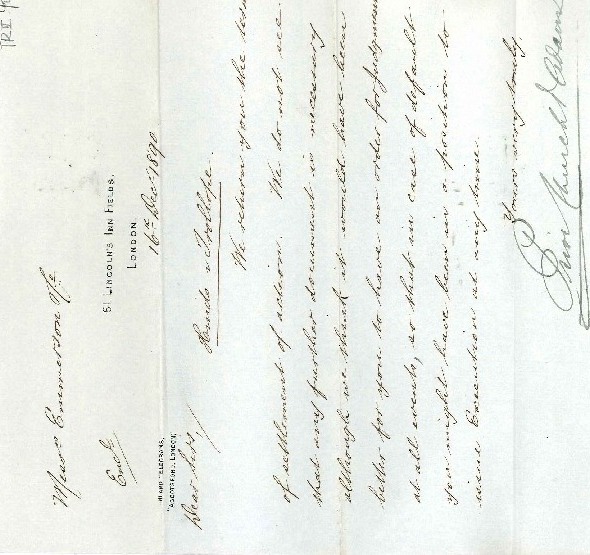 51 Lincoln's Inn Fields,
London.
16th Dec. 1890
Inland Telegrams,
London.
Dear Sirs,
v Trollope.
We return you the
of settlement of action. We do not see
that any further document is necessary
although we think it would have been
better for you to have an order for Judgment
at all events, so that in case of default
you might have been in a position to
issue Execution at any time.
Yours very truly,
Church
Messrs Emmerson &c
Encl.